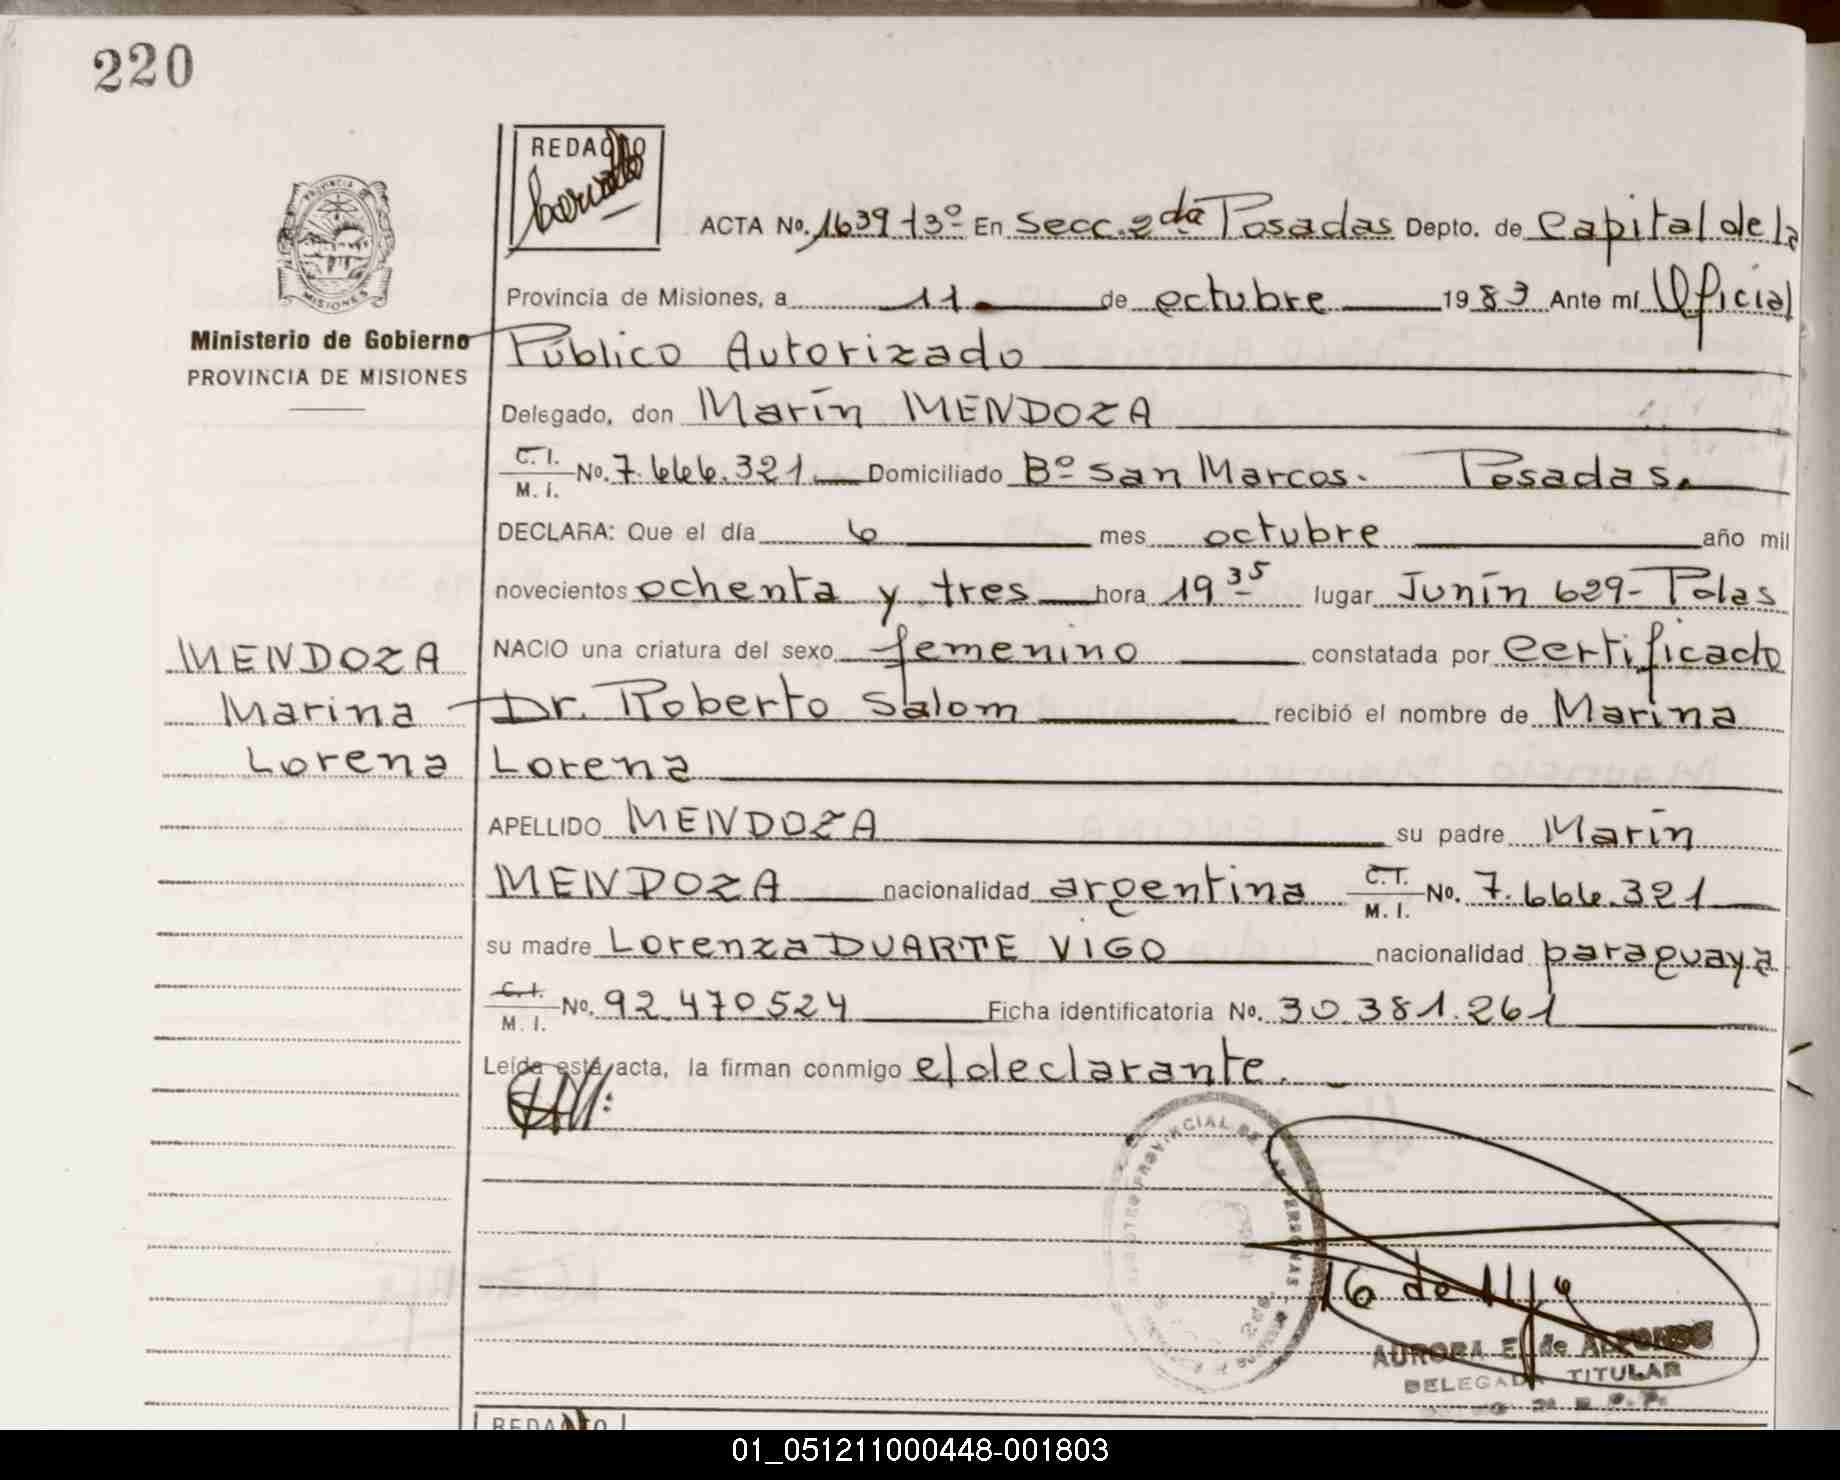 220
REDACTO
PROVINCIA DE
MISIONES
Ministerio de Gobierno
PROVINCIA DE MISIONES
ACTA No. 1639 t3º En Secc. 2da Posadas Depto. de Capital de la
Provincia de Misiones, a 11 de octubre 1983 Ante mí Oficial
Público Autorizado
Delegado, don Marín MENDOZA
C. I. / M. I. No. 7.666.321 Domiciliado Bº San Marcos. Posadas.
DECLARA: Que el día 6 mes octubre año mil
novecientos ochenta y tres hora 19 35 lugar Junín 629- Pdas
MENDOZA
Marina
Lorena
NACIO una criatura del sexo femenino constatada por certificado
Dr. Roberto Salom recibió el nombre de Marina
Lorena
APELLIDO MENDOZA su padre Marín
MENDOZA nacionalidad argentina C.I. / M. I. No. 7.666.321
su madre Lorenza DUARTE VIGO nacionalidad paraguaya
C.I. / M. I. No. 92.470524 Ficha identificatoria No. 30.381.261
Leída está acta, la firman conmigo el declarante.
PROVINCIAL DE LAS PERSONAS
AURORA E. de
DELEGADA TITULAR
REDACTO
01_051211000448-001803